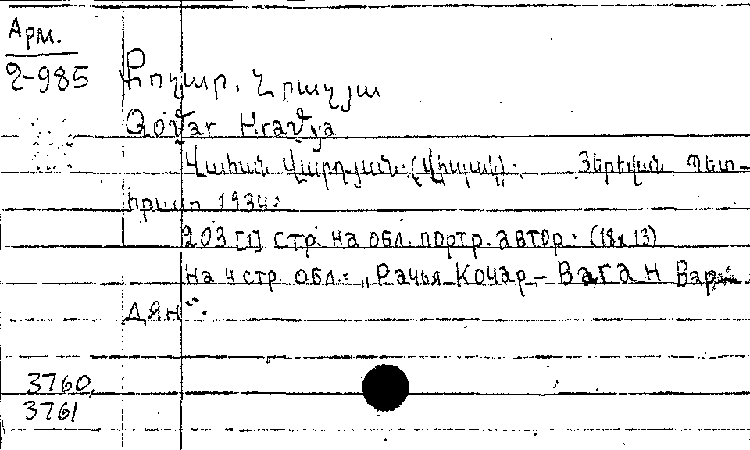 Арм.
2-985
Քոչար. Հրաչյա
Qočar Hračya
Վահան Վարդյան: (Վիպակ): Յերևան Պետ-
հրատ 1934:
203 [1] стр. на обл. портр. автор. (18x13)
на 4 стр. обл.: „Рачья Кочар – Ваган Вар
дян“.
3760,
3761